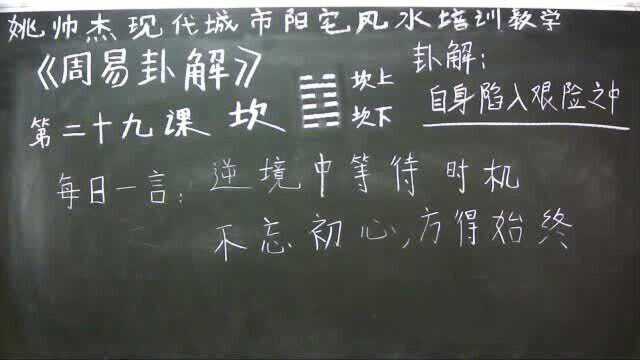 姚帅杰现代城市阳宅风水培训教学
《周易卦解》
第二十九课 坎
坎上
坎下
卦解:
自身陷入艰险之中
每日一言: 逆境中等待时机
不忘初心,方得始终